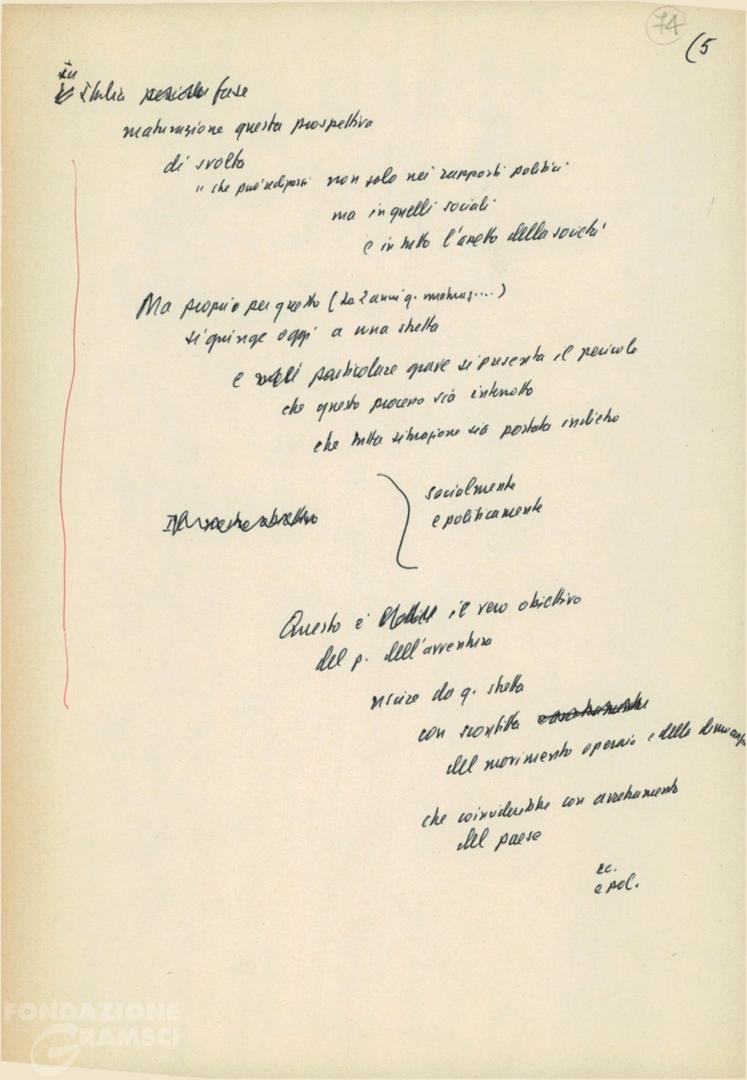 74
(5
in
Italia fase
maturazione questa prospettiva
di svolta
non solo nei rapporti politici
ma in quelli sociali
e in tutto l'assetto della società
Ma proprio per questo (da 2 anni q. maturaz....)
si giunge oggi a una stretta
e particolare grave si presenta il pericolo
che questo processo sia interrotto
che tutta situazione sia portata indietro
socialmente
e politicamente
Questo è il vero obiettivo
del p. dell'avventura
uscire da q. stretta
con sconfitta
del movimento operaio e della democrazia
che coinciderebbe con arretramento
del paese
ec.
e pol.
FONDAZIONE
GRAMSCI
onlus